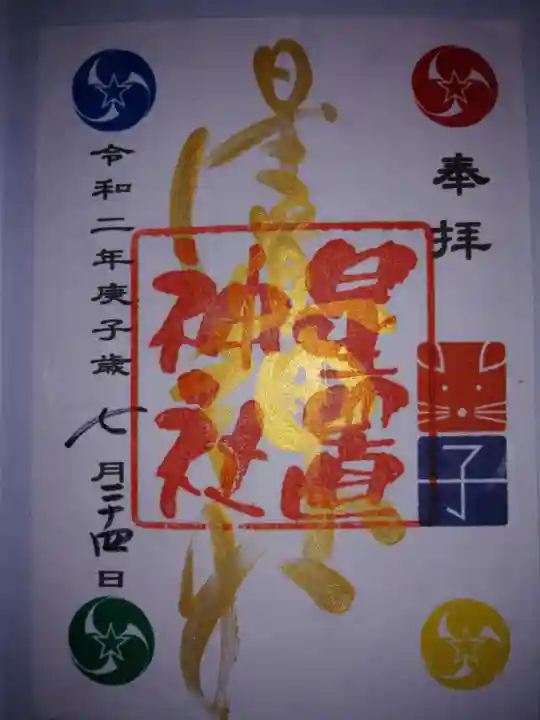 奉拝
星置
神社
子
令和二年庚子歳 七月二十四日